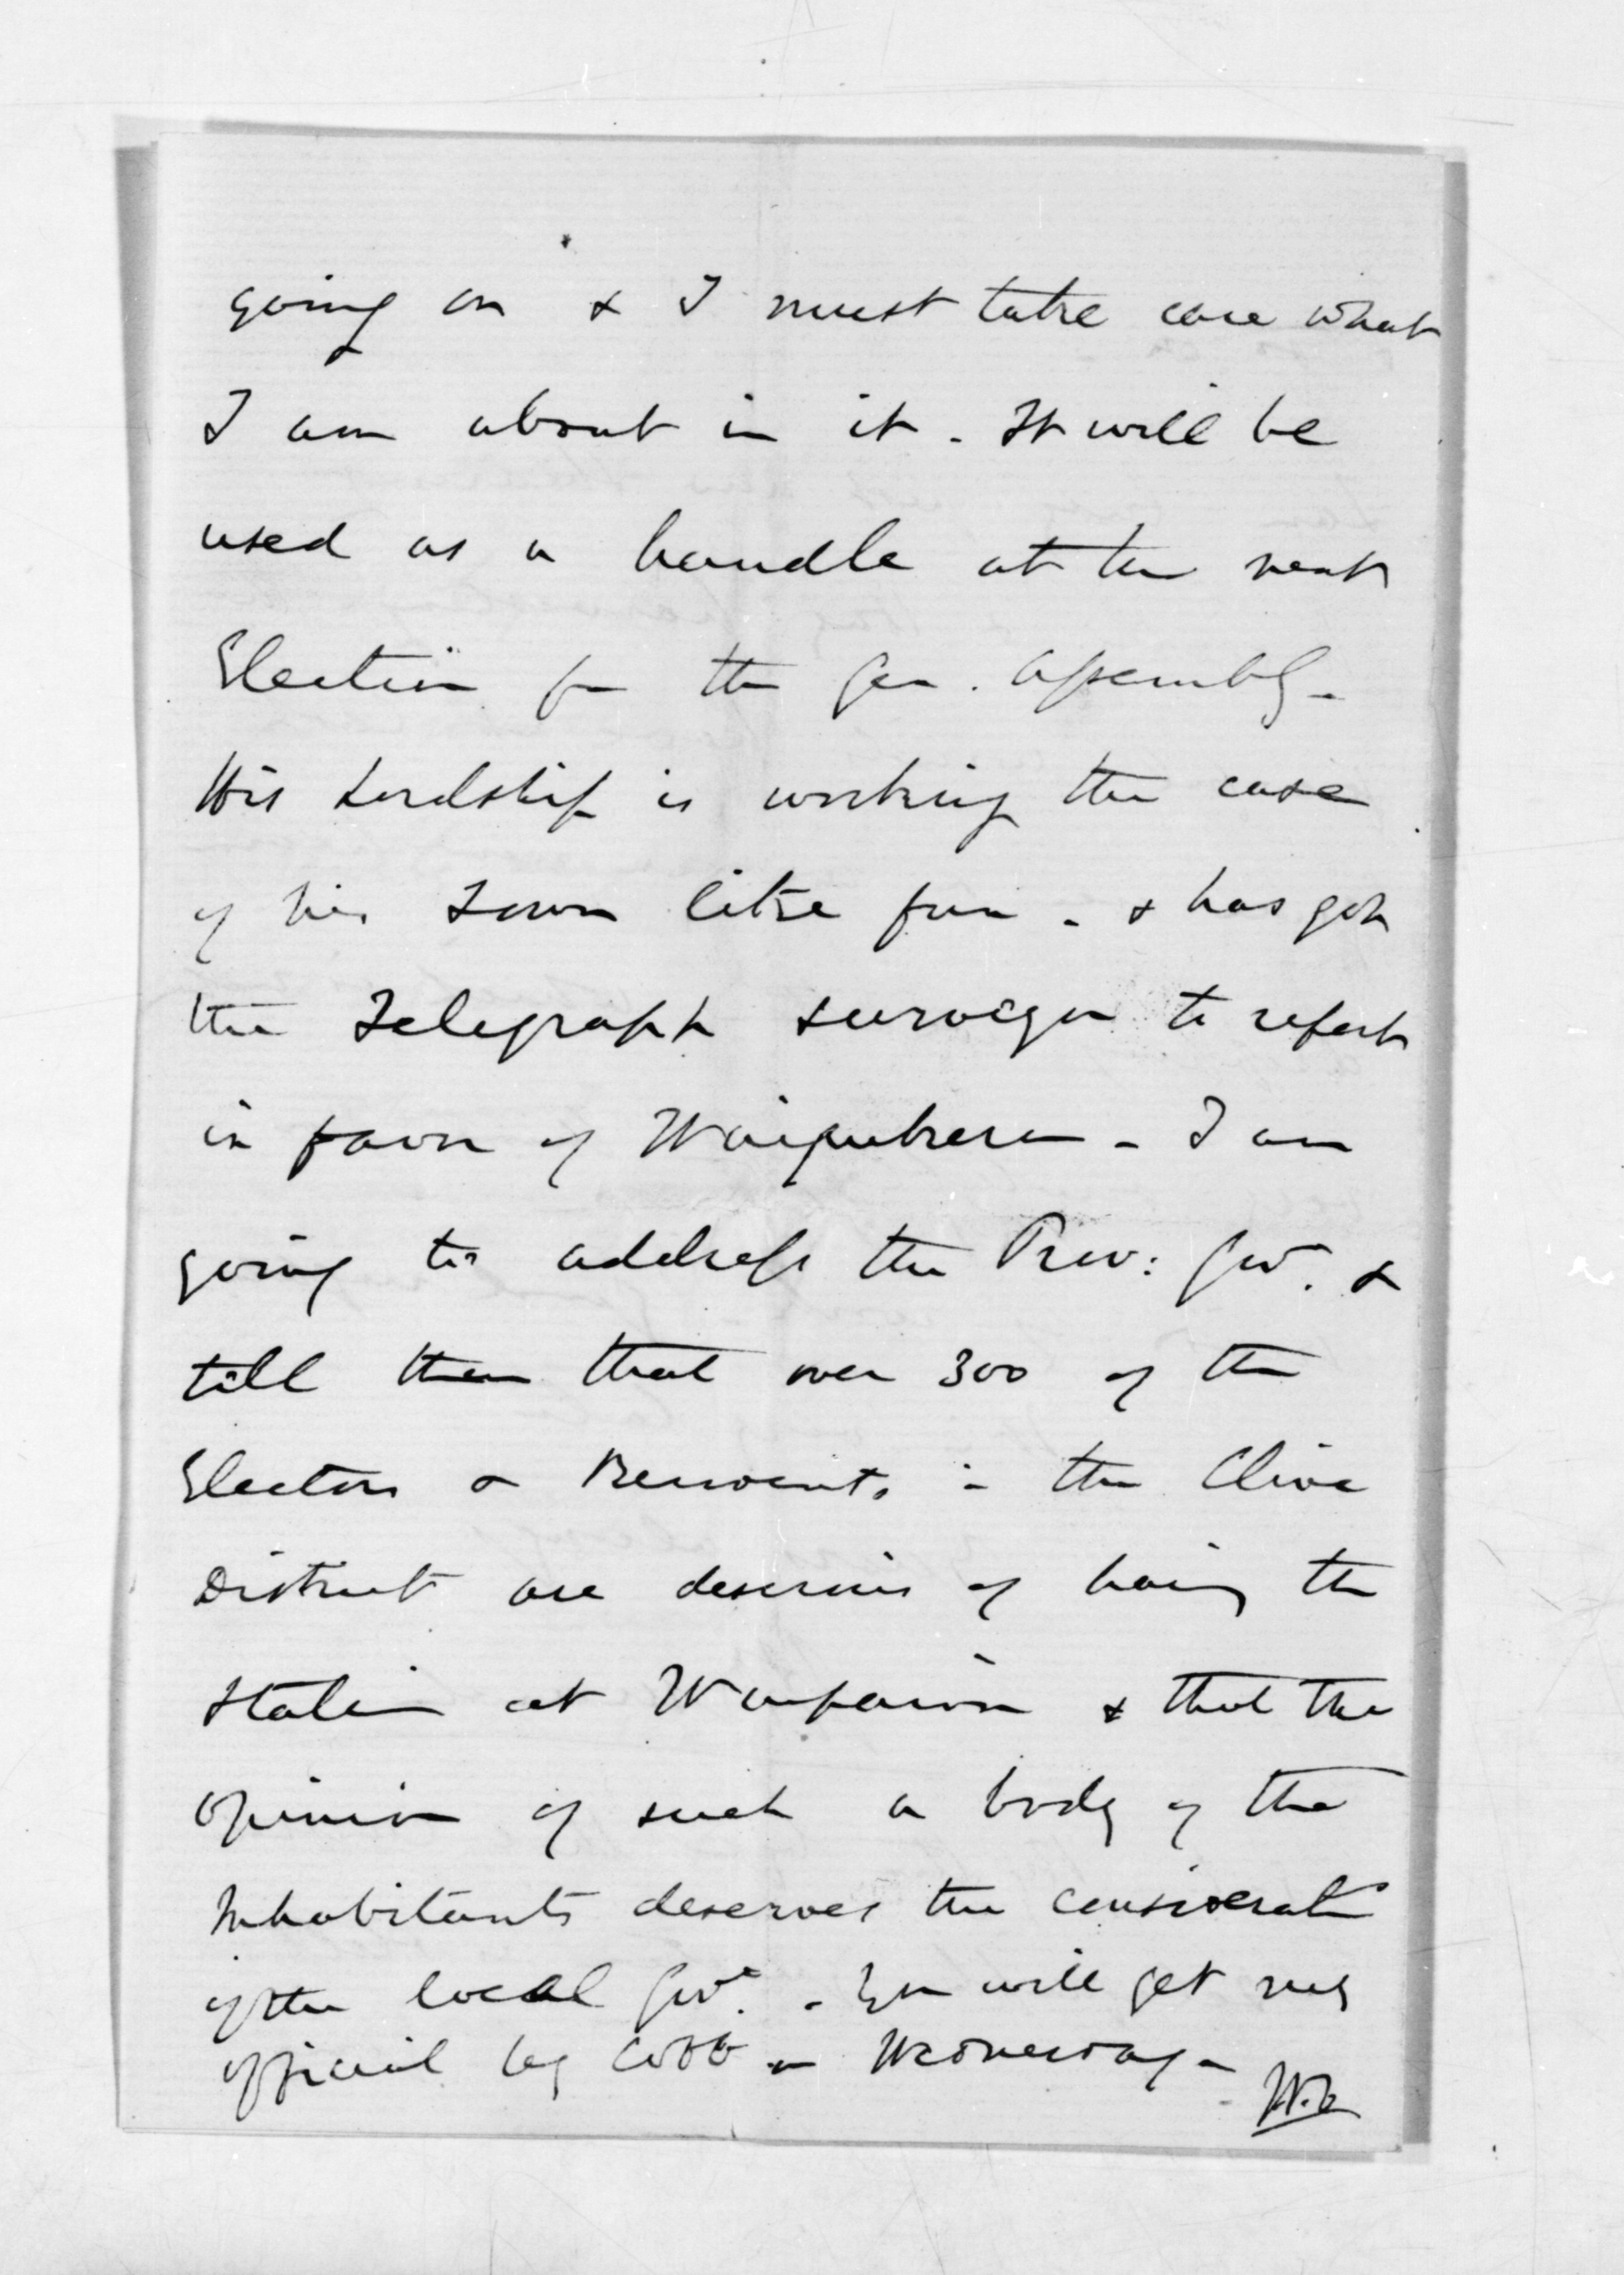 going on & I must take care what
I am about in it. It will be
used as a handle at the next
Election for the Gen. Assembly -
His Lordship is working the case
of his Town like fun - & has got
the Telegraph surveyor to report
in favor of Waipukurau - I am
going to address the Prov: Govt. &
tell them that over 300 of the
Electors & Residents in the Clive
District are desirous of having the
station at Waipawa & that the
opinion of such a body of the
Inhabitants deserves the consideration
of the local Govt. - You will get my
official by Cobb on Wednesday -